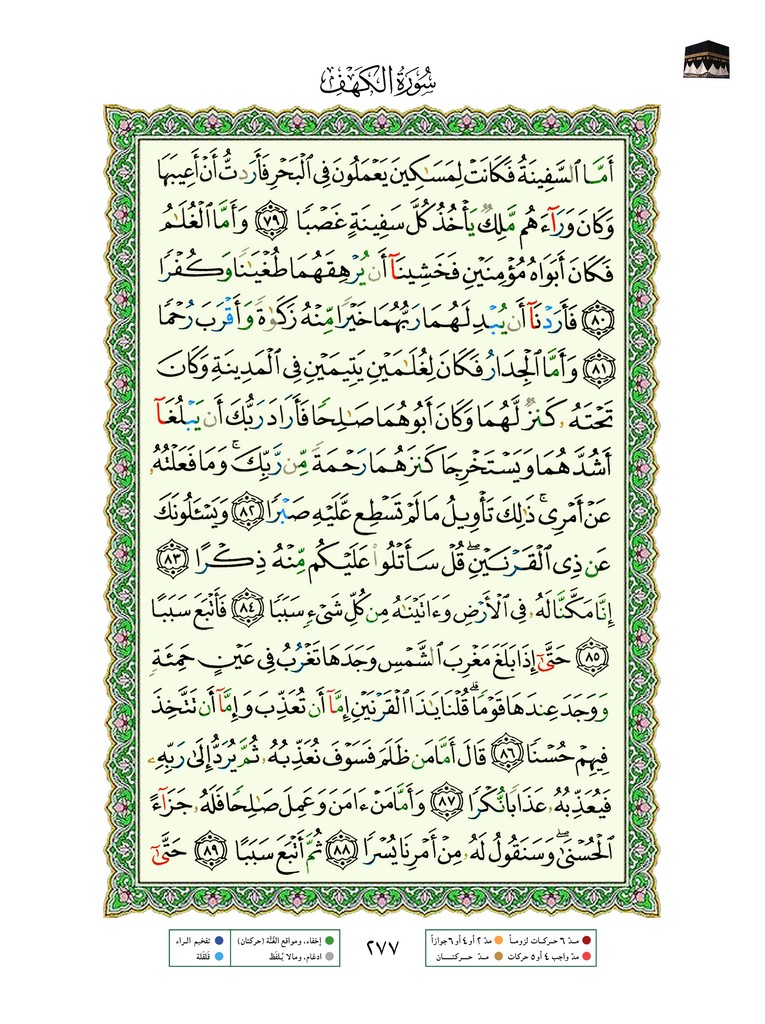 سُورَةُ الكَهْفِ
أَمَّا ٱلسَّفِينَةُ فَكَانَتْ لِمَسَٰكِينَ يَعْمَلُونَ فِى ٱلْبَحْرِ فَأَرَدتُّ أَنْ أَعِيبَهَا
وَكَانَ وَرَآءَهُم مَّلِكٌ يَأْخُذُ كُلَّ سَفِينَةٍ غَصْبًا ٧٩ وَأَمَّا ٱلْغُلَٰمُ
فَكَانَ أَبَوَاهُ مُؤْمِنَيْنِ فَخَشِينَآ أَن يُرْهِقَهُمَا طُغْيَٰنًا وَكُفْرًا
٨٠ فَأَرَدْنَآ أَن يُبْدِلَهُمَا رَبُّهُمَا خَيْرًا مِّنْهُ زَكَوٰةً وَأَقْرَبَ رُحْمًا
٨١ وَأَمَّا ٱلْجِدَارُ فَكَانَ لِغُلَٰمَيْنِ يَتِيمَيْنِ فِى ٱلْمَدِينَةِ وَكَانَ
تَحْتَهُۥ كَنزٌ لَّهُمَا وَكَانَ أَبُوهُمَا صَٰلِحًا فَأَرَادَ رَبُّكَ أَن يَبْلُغَآ
أَشُدَّهُمَا وَيَسْتَخْرِجَا كَنزَهُمَا رَحْمَةً مِّن رَّبِّكَ ۚ وَمَا فَعَلْتُهُۥ
عَنْ أَمْرِى ۚ ذَٰلِكَ تَأْوِيلُ مَا لَمْ تَسْطِع عَّلَيْهِ صَبْرًا ٨٢ وَيَسْـَٔلُونَكَ
عَن ذِى ٱلْقَرْنَيْنِ ۖ قُلْ سَأَتْلُوا۟ عَلَيْكُم مِّنْهُ ذِكْرًا ٨٣
إِنَّا مَكَّنَّا لَهُۥ فِى ٱلْأَرْضِ وَءَاتَيْنَٰهُ مِن كُلِّ شَىْءٍ سَبَبًا ٨٤ فَأَتْبَعَ سَبَبًا
٨٥ حَتَّىٰٓ إِذَا بَلَغَ مَغْرِبَ ٱلشَّمْسِ وَجَدَهَا تَغْرُبُ فِى عَيْنٍ حَمِئَةٍ
وَوَجَدَ عِندَهَا قَوْمًا ۗ قُلْنَا يَٰذَا ٱلْقَرْنَيْنِ إِمَّآ أَن تُعَذِّبَ وَإِمَّآ أَن تَتَّخِذَ
فِيهِمْ حُسْنًا ٨٦ قَالَ أَمَّا مَن ظَلَمَ فَسَوْفَ نُعَذِّبُهُۥ ثُمَّ يُرَدُّ إِلَىٰ رَبِّهِۦ
فَيُعَذِّبُهُۥ عَذَابًا نُّكْرًا ٨٧ وَأَمَّا مَنْ ءَامَنَ وَعَمِلَ صَٰلِحًا فَلَهُۥ جَزَآءً
ٱلْحُسْنَىٰ ۖ وَسَنَقُولُ لَهُۥ مِنْ أَمْرِنَا يُسْرًا ٨٨ ثُمَّ أَتْبَعَ سَبَبًا ٨٩ حَتَّىٰٓ
مدّ ٦ حركات لزوماً مدّ ٢ أو ٤ أو ٦ جوازاً
مدّ واجب ٤ أو ٥ حركات مدّ حركتان
٢٧٧
إخفاء، ومواقع الغنّة (حركتان) تفخيم الراء
ادغام، ومالا يُلفظ قلقلة